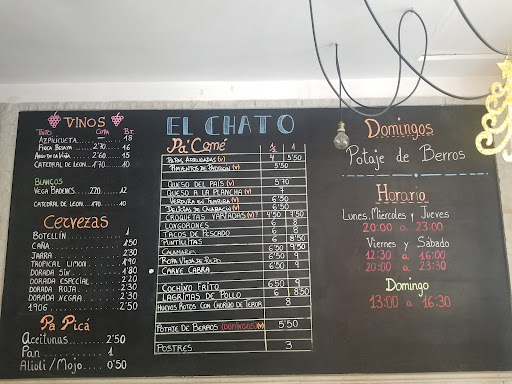 VINOS
TINTO COPA BT.
AZALICUETA — 18
2'70 16
2'60 15
CATEDRAL DE LEON 1'70 10
BLANCOS
VEGA 2'20 12
CATEDRAL DE LEON 1'70 10
CERVEZAS
BOTELLIN 1
CAÑA 1'50
JARRA 2'30
TROPICAL LIMON 1'90
DORADA SIN 1'80
DORADA ESPECIAL 2'20
DORADA ROJA 2'50
DORADA NEGRA 2'30
1906 2'50
Pa Picá
Aceitunas 2'50
Pan 1
Alioli/Mojo 0'50
EL CHATO
Pa' Comé ½ 1
PAPAS ARRUGADAS (V) 4 5'50
PIMIENTOS DE PADRÓN (V)
QUESO DEL PAÍS (V) 5'70
QUESO A LA PLANCHA (V) 7
VERDURA EN TEMPURA (V) 6'50
DELICIAS DE CALABACÍN (V) 6'50
CROQUETAS VARIADAS (V)? 4'50 7'50
LONGORONES 8
TACOS DE PESCADO 8
PUNTILLITAS 6 8'50
CALAMARES 6'50 9'50
ROPA VIEJA DE POLLO 6'50 9
CARNE CABRA 6'50 9
COCHINO FRITO 6'50 9
LAGRIMAS DE POLLO 6 8'50
HUEVOS ROTOS CON CHORIZO DE TEROR 8
POTAJE DE BERROS (DOMINGOS)(V) 5'50
POSTRES 3
Domingos
Potaje de Berros
Horario
Lunes, Miercoles y Jueves
20:00 a 23:00
Viernes y Sábado
12:30 a 16:00
20:00 a 23:30
Domingo
13:00 a 16:30